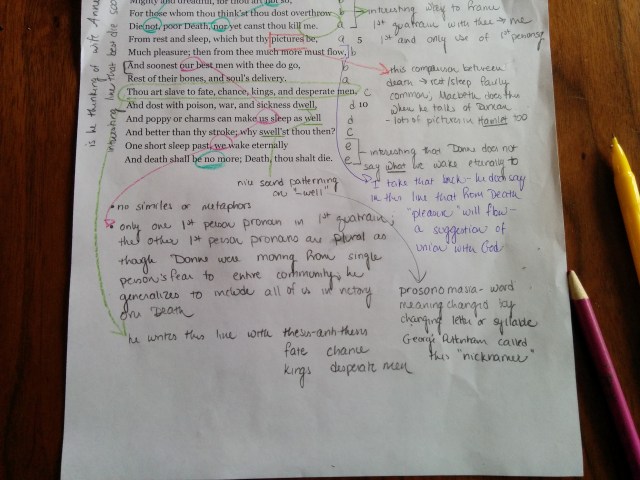 Mighty and dreadful, for thou art not so,
For those whom thou think'st thou dost overthrow
Die not, poor Death, nor yet canst thou kill me.
From rest and sleep, which but thy pictures be,
Much pleasure; then from thee much more must flow,
And soonest our best men with thee do go,
Rest of their bones, and soul's delivery.
Thou art slave to fate, chance, kings, and desperate men,
And dost with poison, war, and sickness dwell,
And poppy or charms can make us sleep as well
And better than thy stroke; why swell'st thou then?
One short sleep past, we wake eternally
And death shall be no more; Death, thou shalt die.
b
a
a 5
b
b
a
c
d 10
d
c
e
e
interesting way to frame
1st quatrain with thee → me
1st and only use of 1st person sg
this comparison between
death → rest/sleep fairly
common; Macbeth does this
when he talks of Duncan
- lots of pictures in Hamlet too
interesting that Donne does not
say what we wake eternally to
I take that back - he does say
in this line that from Death
"pleasure" will flow -
a suggestion of
union with God
is he thinking of wife Anne
interesting line that best die
sound patterning
on "-well"
• no similes or metaphors
• only one 1st person pronoun in 1st quatrain;
the other 1st person pronouns are plural as
though Donne were moving from single
person's fear to entire community; he
generalizes to include all of us in victory
over Death
he writes this line with thesis-antithesis
fate chance
kings desperate men
prosonomasia - word
meaning changed by
changing letter or syllable
George Puttenham called
this "nicknamer"